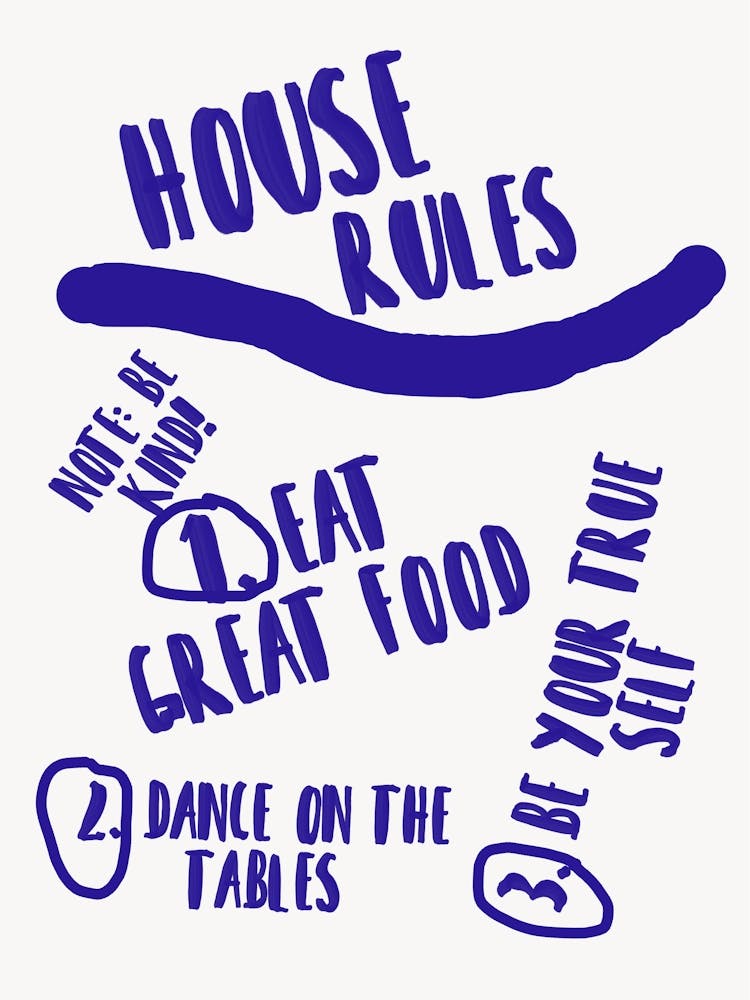 HOUSE
RULES
NOTE: BE
KIND!
1. EAT
GREAT FOOD
2. DANCE ON THE
TABLES
3. BE YOUR TRUE
SELF